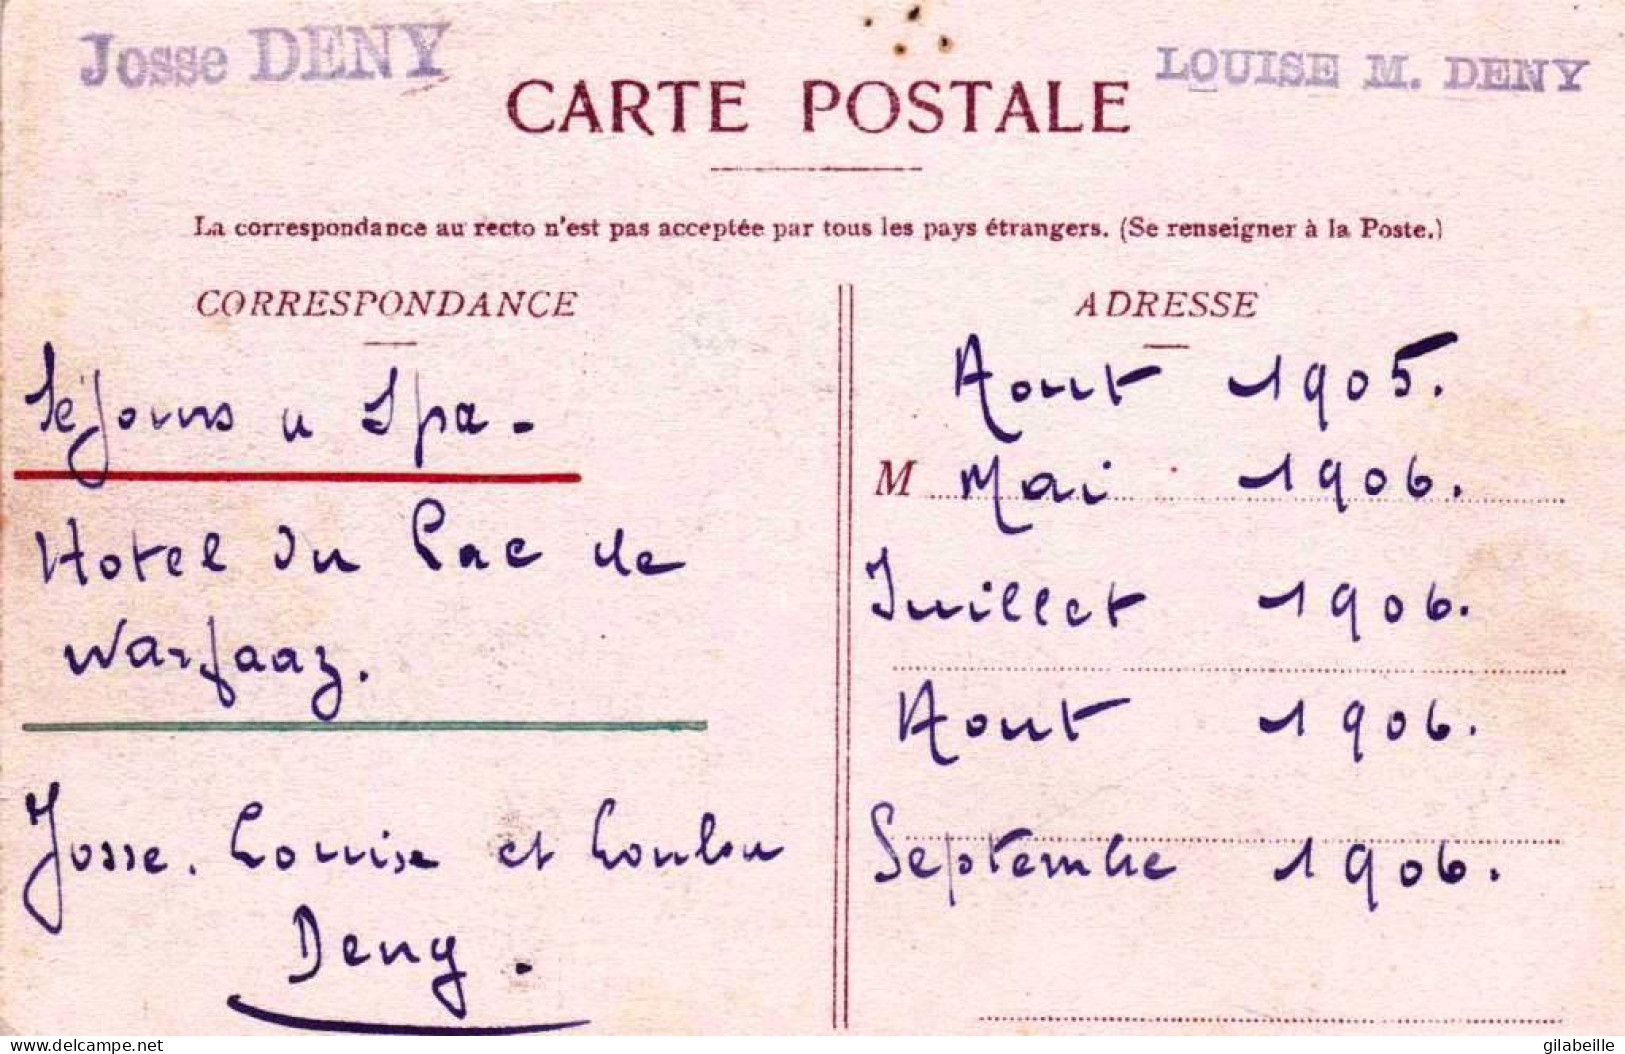 Josse DENY
LOUISE M. DENY
CARTE POSTALE
La correspondance au recto n'est pas acceptée par tous les pays étrangers. (Se renseigner à la Poste.)
CORRESPONDANCE
Séjours a Spa -
Hotel du Lac de
Warfaaz.
Josse. Louise et Loulou
Deny.
ADRESSE
Aout 1905.
M Mai 1906.
Juillet 1906.
Aout 1906.
Septembre 1906.
delcampe.net
gilabeille